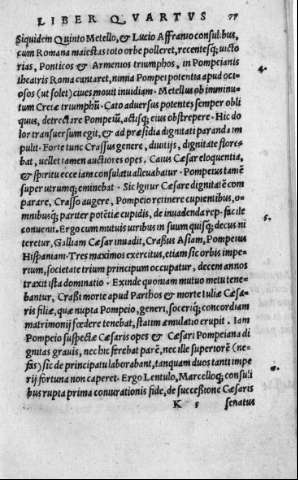 LIBER QVARTVS 77
Siquidem Quinto Metello, & Lucio Affranio consulibus,
cum Romana maiestas toto orbe polleret, recentesq; uicto
rias, Ponticos & Armenios triumphos, in Pompeianis
theatris Roma cantaret, nimia Pompei potentia apud ocio
sos (ut solet) ciues mouit inuidiam. Metellus ob imminu
tum Cretæ triumphũ. Cato aduersus potentes semper obli
quus, detrectare Pompeiũ, actisq; eius obstrepere. Hic do
lor transuersum egit, & ad præsidia dignitati paranda im
pulit. Forte tunc Crassus genere, diuitijs, dignitate flore
bat, uellet tamen auctiores opes. Caius Cæsar eloquentia,
& spiritu ecce iam consulatu alleuabatur. Pompeius tamẽ
super utrumq; eminebat. Sic Igitur Cæsare dignitatẽ com
parare, Crasso augere, Pompeio retinere cupientibus, o=
mnibusq; pariter potẽtiæ cupidis, de inuadenda rep. facile
conuenit. Ergo cum mutuis uiribus in suum quisq; decus ni
teretur, Galliam Cæsar inuadit, Crassus Asiam, Pompeius
Hispaniam. Tres maximos exercitus, etiam sic orbis impe=
rium, societate trium principum occupatur, decem annos
traxit ista dominatio. Exinde quoniam mutuo metu tene=
bantur, Crassi morte apud Parthos & morte Iuliæ Cæsa=
ris filiæ, quæ nupta Pompeio, generi, soceriq; concordiam
matrimonij fœdere tenebat, statim æmulatio erupit. Iam
Pompeio suspectæ Cæsaris opes & Cæsari Pompeiana di
gnitas grauis, nec hic ferebat parẽ, nec ille superiorẽ (ne=
fas) sic de principatu laborabant, tanquam duos tanti impe
rij fortuna non caperet. Ergo Lentulo, Marcelloq; consuli
bus rupta prima coniurationis fide, de successione Cæsaris
K 5 senatus